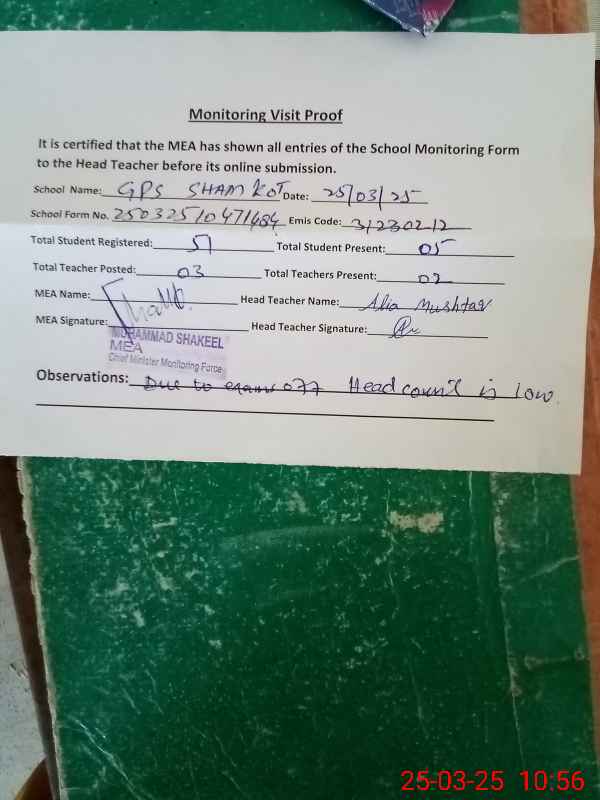 Monitoring Visit Proof
It is certified that the MEA has shown all entries of the School Monitoring Form
to the Head Teacher before its online submission.
School Name: GPS SHAM KOT Date: 25/03/25
School Form No. 25032510471484 Emis Code: 31230212
Total Student Registered: 51 Total Student Present: 05
Total Teacher Posted: 03 Total Teachers Present: 02
MEA Name: Head Teacher Name: Alia Mushtaq
MEA Signature: Head Teacher Signature:
MUHAMMAD SHAKEEL
MEA
Chief Minister Monitoring Force
Observations: Due to exams off Head count is low.
25-03-25 10:56